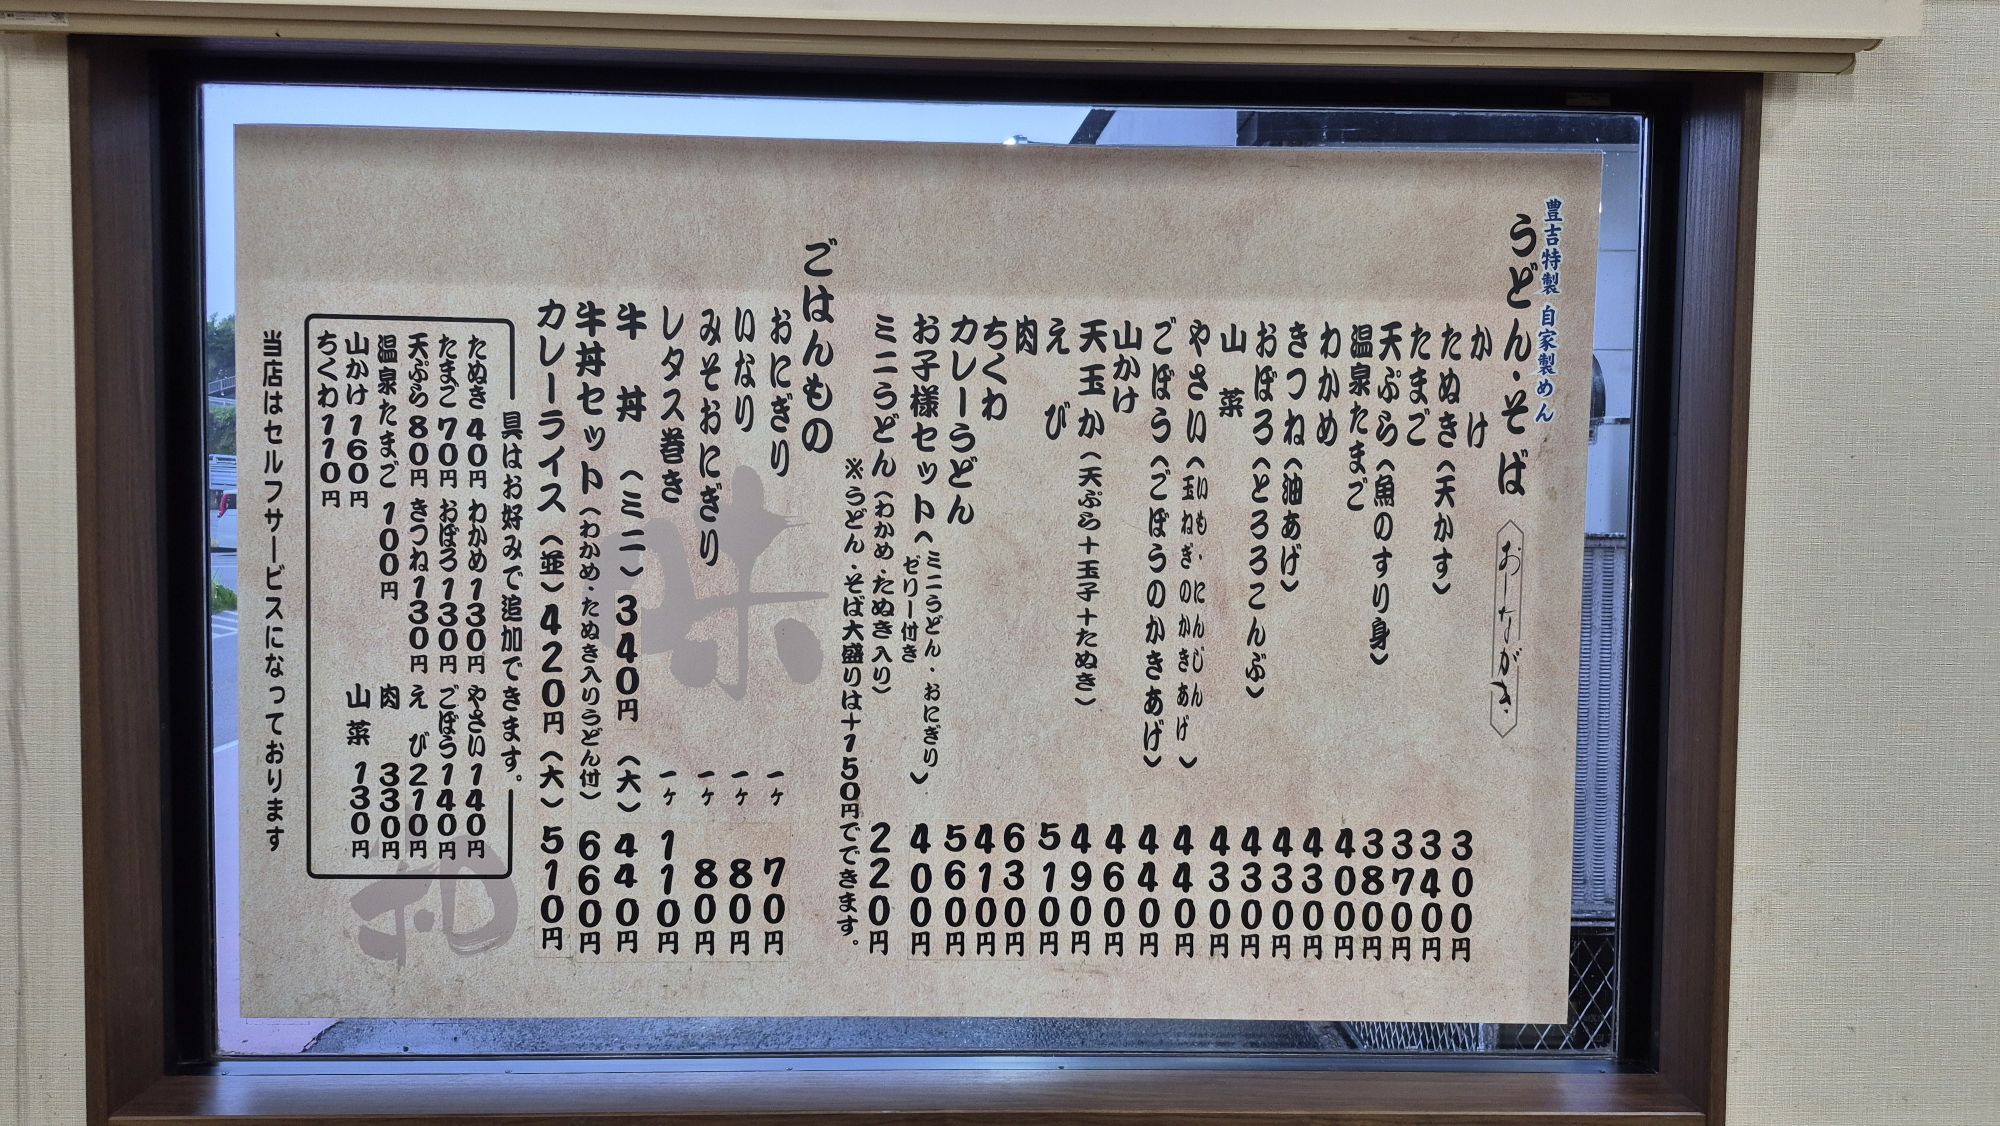 豊吉特製 自家製めん
うどん・そば
おしながき
かけ 300円
たぬき(天かす) 340円
たまご 370円
天ぷら(魚のすり身) 380円
温泉たまご 400円
わかめ 430円
きつね(油あげ) 430円
おぼろ(とろろこんぶ) 430円
山菜 430円
やさい(玉ねぎ・いも・にんじんのかきあげ) 440円
ごぼう(ごぼうのかきあげ) 440円
山かけ 460円
天玉か(天ぷら+玉子+たぬき) 490円
えび 510円
肉 630円
ちくわ 410円
カレーうどん 560円
お子様セット(ミニうどん・おにぎり ゼリー付き) 400円
ミニうどん(わかめ・たぬき入り) 220円
※うどん・そば大盛りは+150円でできます。
ごはんもの
おにぎり 一ヶ 70円
いなり 一ヶ 80円
みそおにぎり 一ヶ 80円
レタス巻き 一ヶ 110円
牛丼 (ミニ)340円 (大) 440円
牛丼セット(わかめ・たぬき入りうどん付) 660円
カレーライス (並)420円 (大) 510円
具はお好みで追加できます。
たぬき 40円 わかめ130円 やさい140円
たまご 70円 おぼろ130円 ごぼう140円
天ぷら 80円 きつね130円 えび210円
温泉たまご 100円 肉 330円
山かけ 160円 山菜 130円
ちくわ110円
当店はセルフサービスになっております
味
和